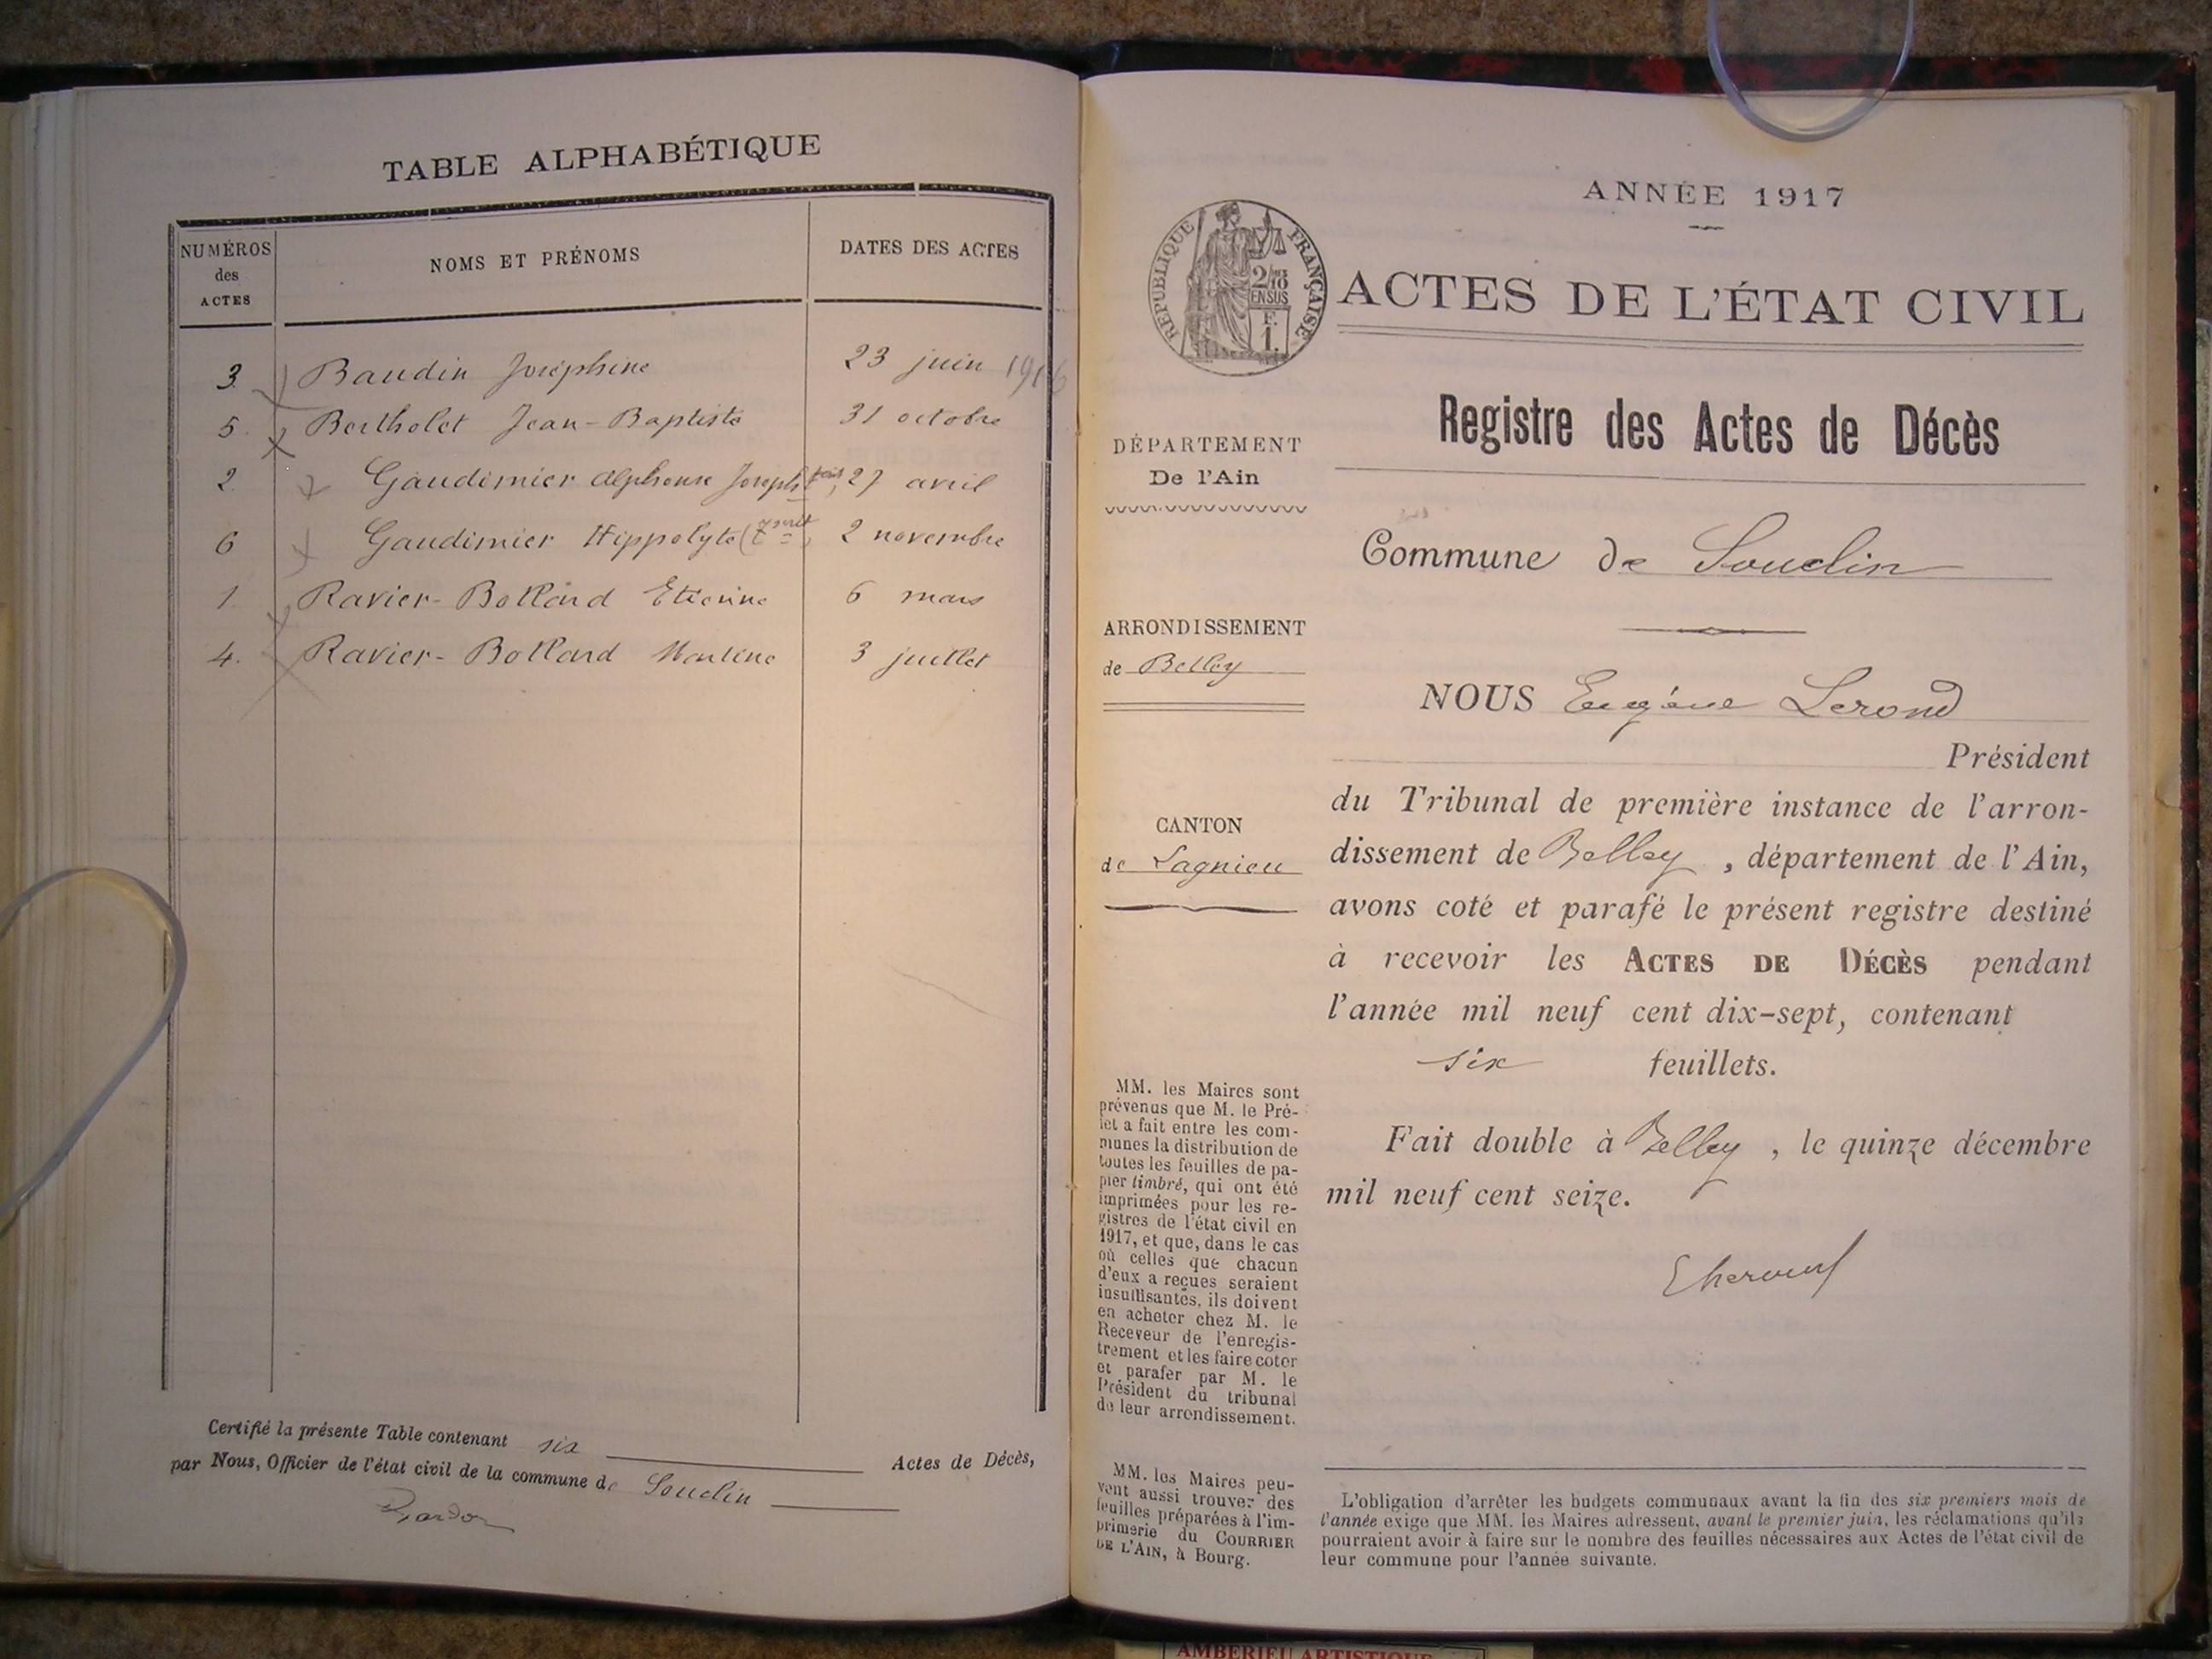 TABLE ALPHABÉTIQUE
NUMÉROS des ACTES NOMS ET PRÉNOMS DATES DES ACTES
3 Baudin Joséphine 23 juin 1916
5 Bertholet Jean-Baptiste 31 octobre
2 Gaudimier Alphonse Joseph 27 avril
6 Gaudimier Hippolyte 2 novembre
1 Ravier-Bollard Etienne 6 mars
4. Ravier-Bollard 3 juillet
Certifié la présente Table contenant six Actes de Décès,
par Nous, Officier de l'état civil de la commune de Souclin
ANNÉE 1917
RÉPUBLIQUE FRANÇAISE
2/10 EN SUS
F. 1.
ACTES DE L'ÉTAT CIVIL
Registre des Actes de Décès
DÉPARTEMENT
De l'Ain
Commune de Souclin
ARRONDISSEMENT
de Belley
NOUS Eugène Lerond
Président
du Tribunal de première instance de l'arron-
dissement de Belley, département de l'Ain,
avons coté et parafé le présent registre destiné
à recevoir les ACTES DE DÉCÈS pendant
l'année mil neuf cent dix-sept, contenant
six feuillets.
Fait double à Belley, le quinze décembre
mil neuf cent seize.
CANTON
de Lagnieu
MM. les Maires sont
prévenus que M. le Pré-
fet a fait entre les com-
munes la distribution de
toutes les feuilles de pa-
pier timbré, qui ont été
imprimées pour les re-
gistres de l'état civil en
1917, et que, dans le cas
où celles que chacun
d'eux a reçues seraient
insuffisantes, ils doivent
en acheter chez M. le
Receveur de l'enregis-
trement et les faire coter
et parafer par M. le
Président du tribunal
de leur arrondissement.
MM. les Maires peu-
vent aussi trouver des
feuilles préparées à l'im-
primerie du COURRIER
DE L'AIN, à Bourg.
L'obligation d'arrêter les budgets communaux avant la fin des six premiers mois de
l'année exige que MM. les Maires adressent, avant le premier juin, les réclamations qu'ils
pourraient avoir à faire sur le nombre des feuilles nécessaires aux Actes de l'état civil de
leur commune pour l'année suivante.
AMBERIEU ARTISTIQUE